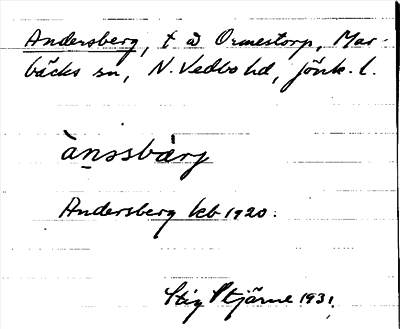 Andersberg, t å Ormestorp, Mar-
bäcks sn, N. Vedbo hd, Jönk. l.
ànssbàrj
Andersberg kb 1920.
Stig Stjärne 1931.